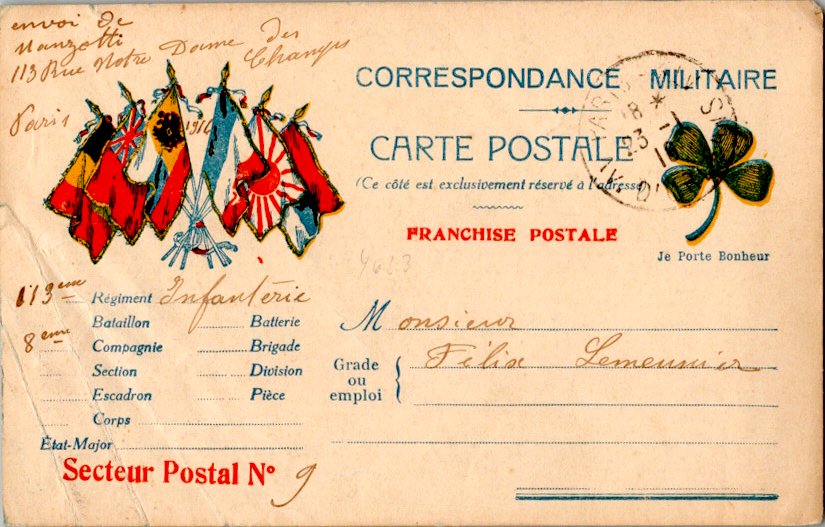 envoi de
Manzotti
113 Rue Notre Dame des
Champs
Paris
1916
CORRESPONDANCE MILITAIRE
CARTE POSTALE
(Ce côté est exclusivement réservé à l'adresse)
FRANCHISE POSTALE
Je Porte Bonheur
PARIS
18 *
23 -1
16
AV. D'
113eme Régiment Infanterie
Bataillon Batterie
8eme Compagnie Brigade
Section Division
Escadron Pièce
Corps
État-Major
Secteur Postal Nº 9
Monsieur
Félix Lemeunier
Grade
ou
emploi